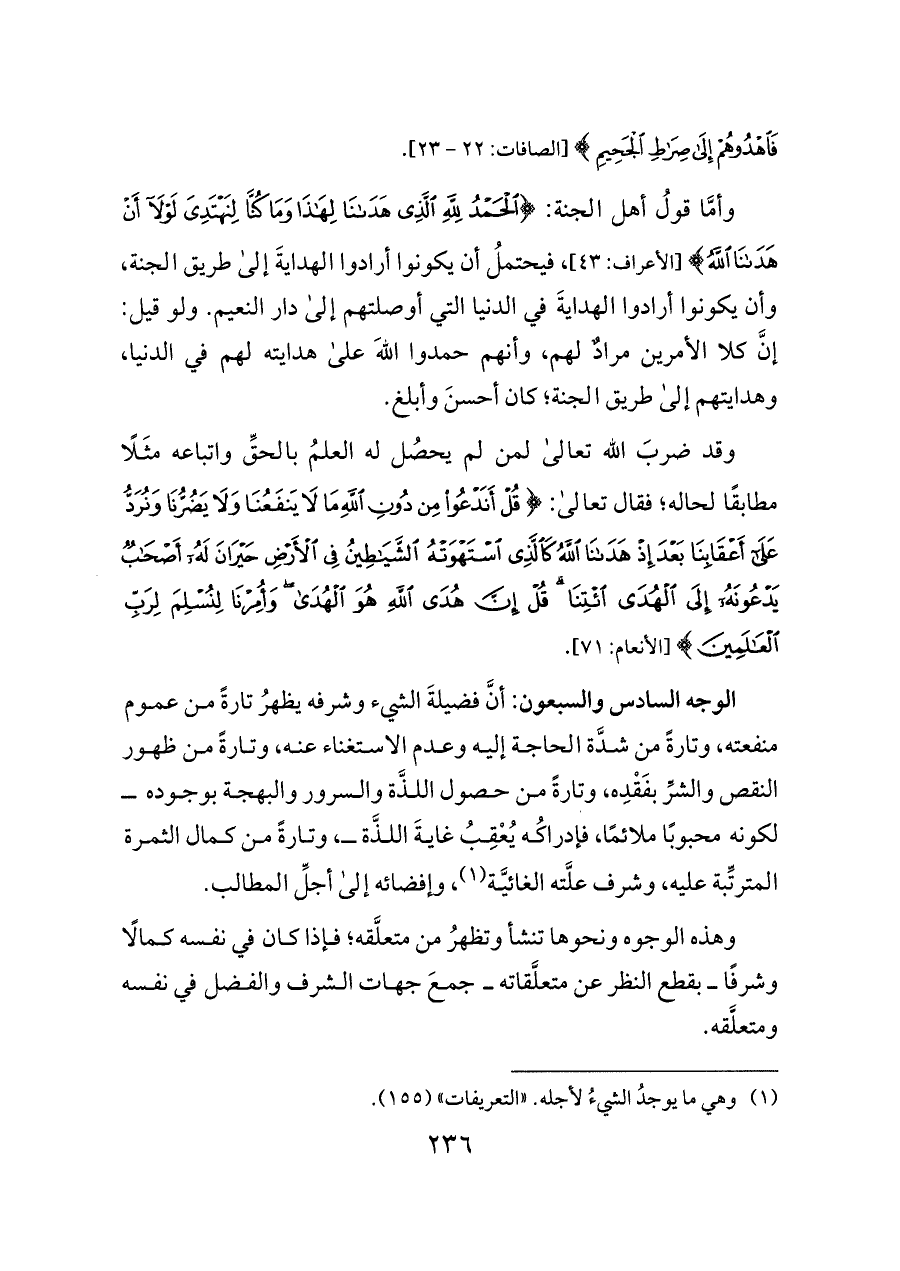 فَٱهۡدُوهُمۡ إِلَىٰ صِرَٰطِ ٱلۡجَحِيمِ ﴾ [الصافات: ٢٢ - ٢٣].
وأمَّا قولُ أهل الجنة: ﴿ٱلۡحَمۡدُ لِلَّهِ ٱلَّذِى هَدَىٰنَا لِهَٰذَا وَمَا كُنَّا لِنَهۡتَدِىَ لَوۡلَآ أَنۡ
هَدَىٰنَا ٱللَّهُ﴾ [الأعراف: ٤٣]، فيحتملُ أن يكونوا أرادوا الهدايةَ إلىٰ طريق الجنة،
وأن يكونوا أرادوا الهدايةَ في الدنيا التي أوصلتهم إلىٰ دار النعيم. ولو قيل:
إنَّ كلا الأمرين مرادٌ لهم، وأنهم حمدوا اللهَ علىٰ هدايته لهم في الدنيا،
وهدايتهم إلىٰ طريق الجنة؛ كان أحسنَ وأبلغ.
وقد ضربَ الله تعالىٰ لمن لم يحصُل له العلمُ بالحقِّ واتباعه مثَلًا
مطابقًا لحاله؛ فقال تعالىٰ: ﴿ قُلۡ أَنَدۡعُوا۟ مِن دُونِ ٱللَّهِ مَا لَا يَنفَعُنَا وَلَا يَضُرُّنَا وَنُرَدُّ
عَلَىٰٓ أَعۡقَابِنَا بَعۡدَ إِذۡ هَدَىٰنَا ٱللَّهُ كَٱلَّذِى ٱسۡتَهۡوَتۡهُ ٱلشَّيَٰطِينُ فِى ٱلۡأَرۡضِ حَيۡرَانَ لَهُۥٓ أَصۡحَٰبٌ
يَدۡعُونَهُۥٓ إِلَى ٱلۡهُدَى ٱئۡتِنَا ۗ قُلۡ إِنَّ هُدَى ٱللَّهِ هُوَ ٱلۡهُدَىٰ ۖ وَأُمِرۡنَا لِنُسۡلِمَ لِرَبِّ
ٱلۡعَٰلَمِينَ ﴾ [الأنعام: ٧١].
الوجه السادس والسبعون: أنَّ فضيلةَ الشيء وشرفه يظهرُ تارةً من عموم
منفعته، وتارةً من شدَّة الحاجة إليه وعدم الاستغناء عنه، وتارةً من ظهور
النقص والشرِّ بفَقْدِه، وتارةً من حصول اللذَّة والسرور والبهجة بوجوده ــ
لكونه محبوبًا ملائمًا، فإدراكُه يُعْقِبُ غايةَ اللذَّة ــ، وتارةً من كمال الثمرة
المترتِّبة عليه، وشرف علَّته الغائيَّة(١)، وإفضائه إلىٰ أجلِّ المطالب.
وهذه الوجوه ونحوها تنشأ وتظهرُ من متعلَّقه؛ فإذا كان في نفسه كمالًا
وشرفًا ــ بقطع النظر عن متعلَّقاته ــ جمعَ جهات الشرف والفضل في نفسه
ومتعلَّقه.
(١) وهي ما يوجدُ الشيءُ لأجله. «التعريفات» (١٥٥).
٢٣٦